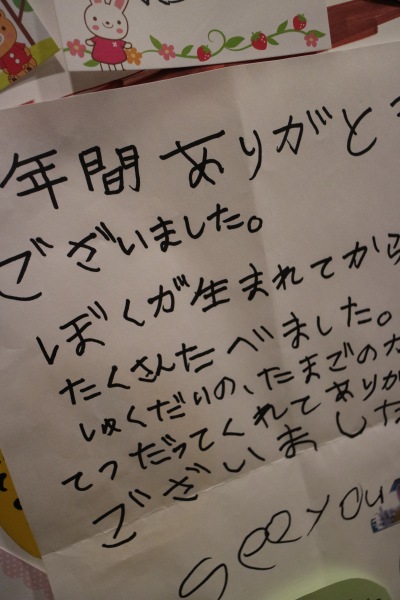 年間ありがとう
ございました。
ぼくが生まれてから
たくさんたべました。
しゅくだいの、たまごの
てつだってくれてありが
ございました
See you